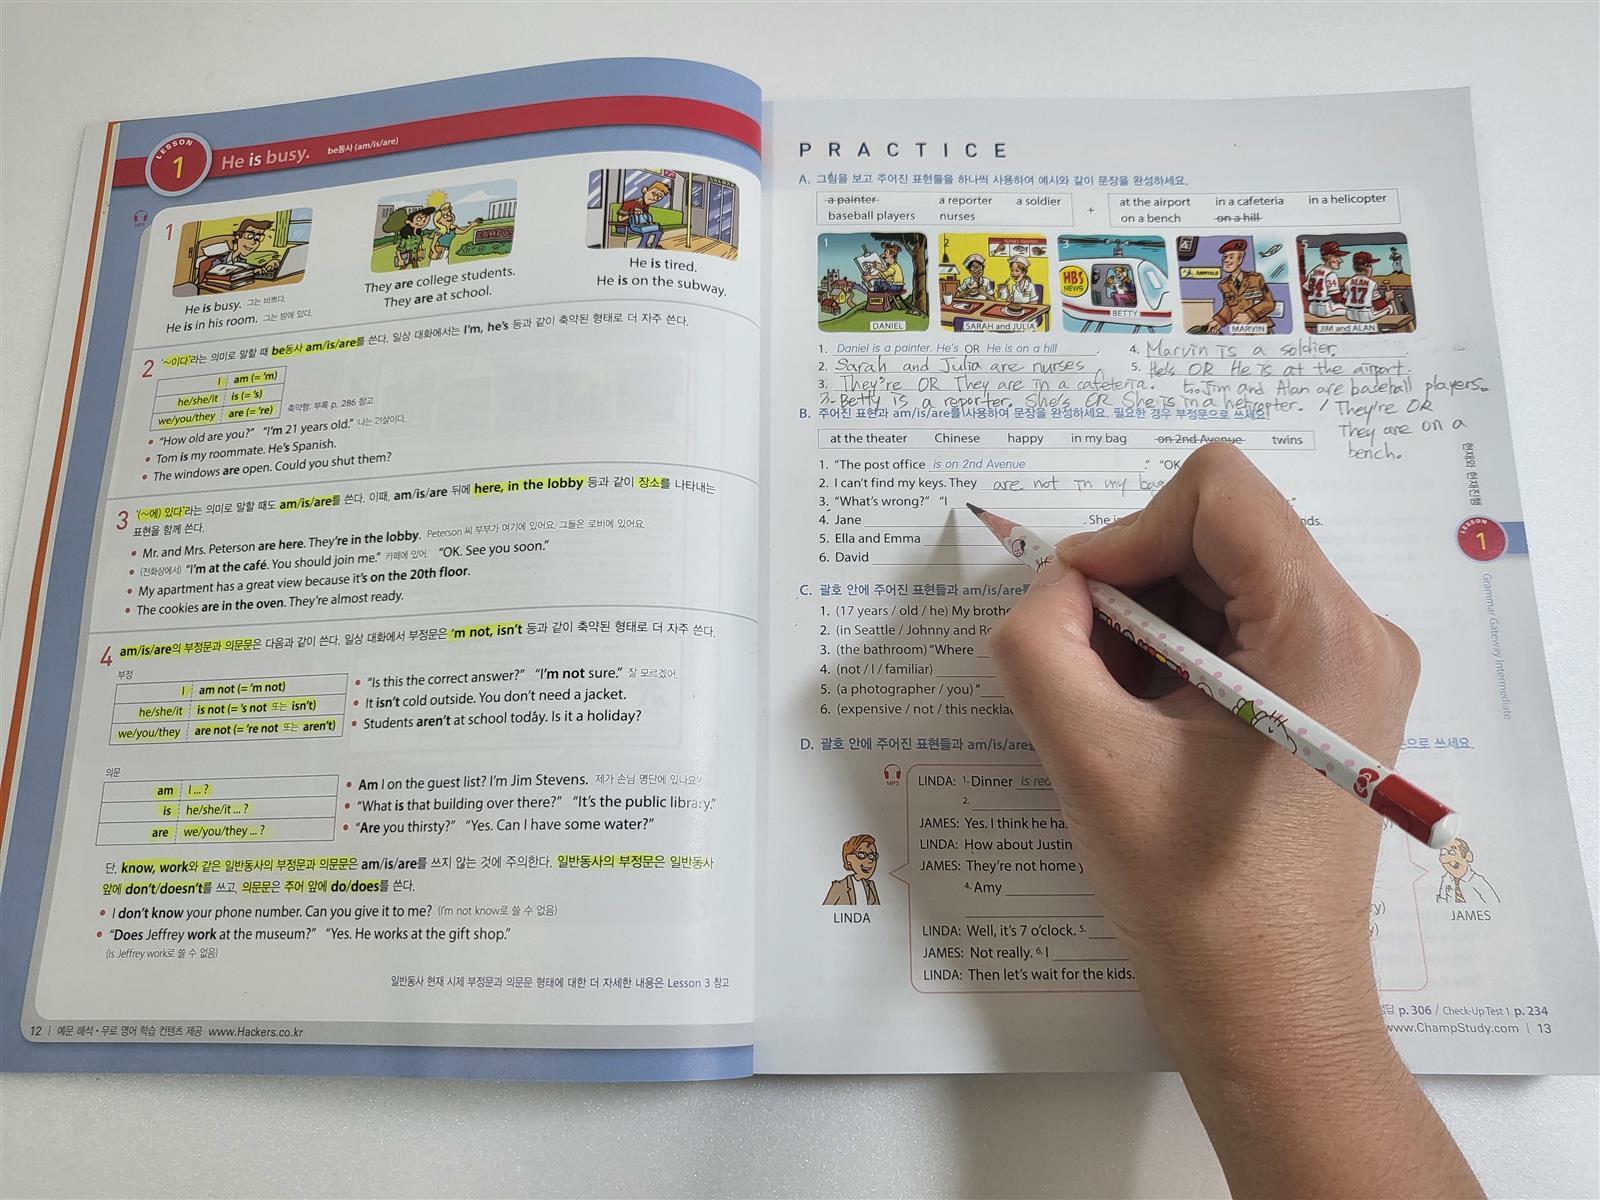 LESSON
1
He is busy. be동사 (am/is/are)
MP3
1
CAMPUS
He is busy. 그는 바쁘다.
He is in his room. 그는 방에 있다.
They are college students.
They are at school.
He is tired.
He is on the subway.
2 '~이다'라는 의미로 말할 때 be동사 am/is/are를 쓴다. 일상 대화에서는 I'm, he's 등과 같이 축약된 형태로 더 자주 쓴다.
I am (= 'm)
he/she/it is (= 's)
we/you/they are (= 're)
축약형: 부록 p. 286 참고
• "How old are you?" "I'm 21 years old." 나는 21살이다.
• Tom is my roommate. He's Spanish.
• The windows are open. Could you shut them?
3 '(~에) 있다'라는 의미로 말할 때도 am/is/are를 쓴다. 이때, am/is/are 뒤에 here, in the lobby 등과 같이 장소를 나타내는
표현을 함께 쓴다.
• Mr. and Mrs. Peterson are here. They're in the lobby. Peterson 씨 부부가 여기에 있어요. 그들은 로비에 있어요.
• (전화상에서) "I'm at the café. You should join me." 카페에 있어. "OK. See you soon."
• My apartment has a great view because it's on the 20th floor.
• The cookies are in the oven. They're almost ready.
4 am/is/are의 부정문과 의문문은 다음과 같이 쓴다. 일상 대화에서 부정문은 'm not, isn't 등과 같이 축약된 형태로 더 자주 쓴다.
부정
I am not (= 'm not)
he/she/it is not (= 's not 또는 isn't)
we/you/they are not (= 're not 또는 aren't)
• "Is this the correct answer?" "I'm not sure." 잘 모르겠어.
• It isn't cold outside. You don't need a jacket.
• Students aren't at school today. Is it a holiday?
의문
am I ... ?
is he/she/it ... ?
are we/you/they ... ?
• Am I on the guest list? I'm Jim Stevens. 제가 손님 명단에 있나요?
• "What is that building over there?" "It's the public library."
• "Are you thirsty?" "Yes. Can I have some water?"
단, know, work와 같은 일반동사의 부정문과 의문문은 am/is/are를 쓰지 않는 것에 주의한다. 일반동사의 부정문은 일반동사
앞에 don't/doesn't를 쓰고, 의문문은 주어 앞에 do/does를 쓴다.
• I don't know your phone number. Can you give it to me? (I'm not know로 쓸 수 없음)
• "Does Jeffrey work at the museum?" "Yes. He works at the gift shop."
(Is Jeffrey work로 쓸 수 없음)
일반동사 현재 시제 부정문과 의문문 형태에 대한 더 자세한 내용은 Lesson 3 참고
12 | 예문 해석 • 무료 영어 학습 컨텐츠 제공 www.Hackers.co.kr
PRACTICE
A. 그림을 보고 주어진 표현들을 하나씩 사용하여 예시와 같이 문장을 완성하세요.
a painter a reporter a soldier
baseball players nurses
+
at the airport in a cafeteria in a helicopter
on a bench on a hill
1 DANIEL
2 SARAH and JULIA
3 HBS NEWS BETTY
4 ARRIVALS MARVIN
5 JIM 34 ALAN 17 JIM and ALAN
1. Daniel is a painter. He's OR He is on a hill .
2. Sarah and Julia are nurses
3. They're OR They are in a cafeteria.
3. Betty is a reporter. She's OR She is in a helicopter.
4. Marvin is a soldier.
5. He's OR He is at the airport.
5. Jim and Alan are baseball players.
/ They're OR
They are on a
bench.
B. 주어진 표현과 am/is/are를 사용하여 문장을 완성하세요. 필요한 경우 부정문으로 쓰세요.
at the theater Chinese happy in my bag on 2nd Avenue twins
1. "The post office is on 2nd Avenue ." "OK
2. I can't find my keys. They are not in my bag
3. "What's wrong?" "I
4. Jane . She nds.
5. Ella and Emma
6. David
C. 괄호 안에 주어진 표현들과 am/is/are를
1. (17 years / old / he) My brothe
2. (in Seattle / Johnny and R
3. (the bathroom) "Where
4. (not / I / familiar)
5. (a photographer / you) "
6. (expensive / not / this neckla
D. 괄호 안에 주어진 표현들과 am/is/are를 으로 쓰세요.
MP3
LINDA: 1. Dinner is rea
2.
JAMES: Yes. I think he ha
LINDA: How about Justin
JAMES: They're not home y
4. Amy
LINDA: Well, it's 7 o'clock. 5.
JAMES: Not really. 6. I
LINDA: Then let's wait for the kids.
LINDA
JAMES
p. 306 / Check-Up Test 1 p. 234
www.ChampStudy.com | 13
현재와 현재진행
LESSON
1
Grammar Gateway Intermediate